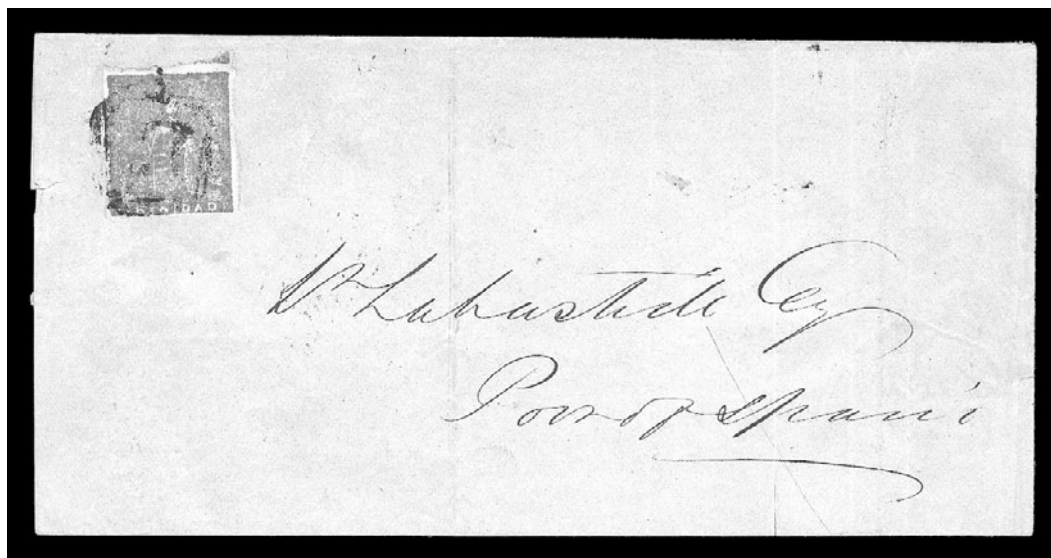 TRINIDAD
Labastide Esq
Port of Spain